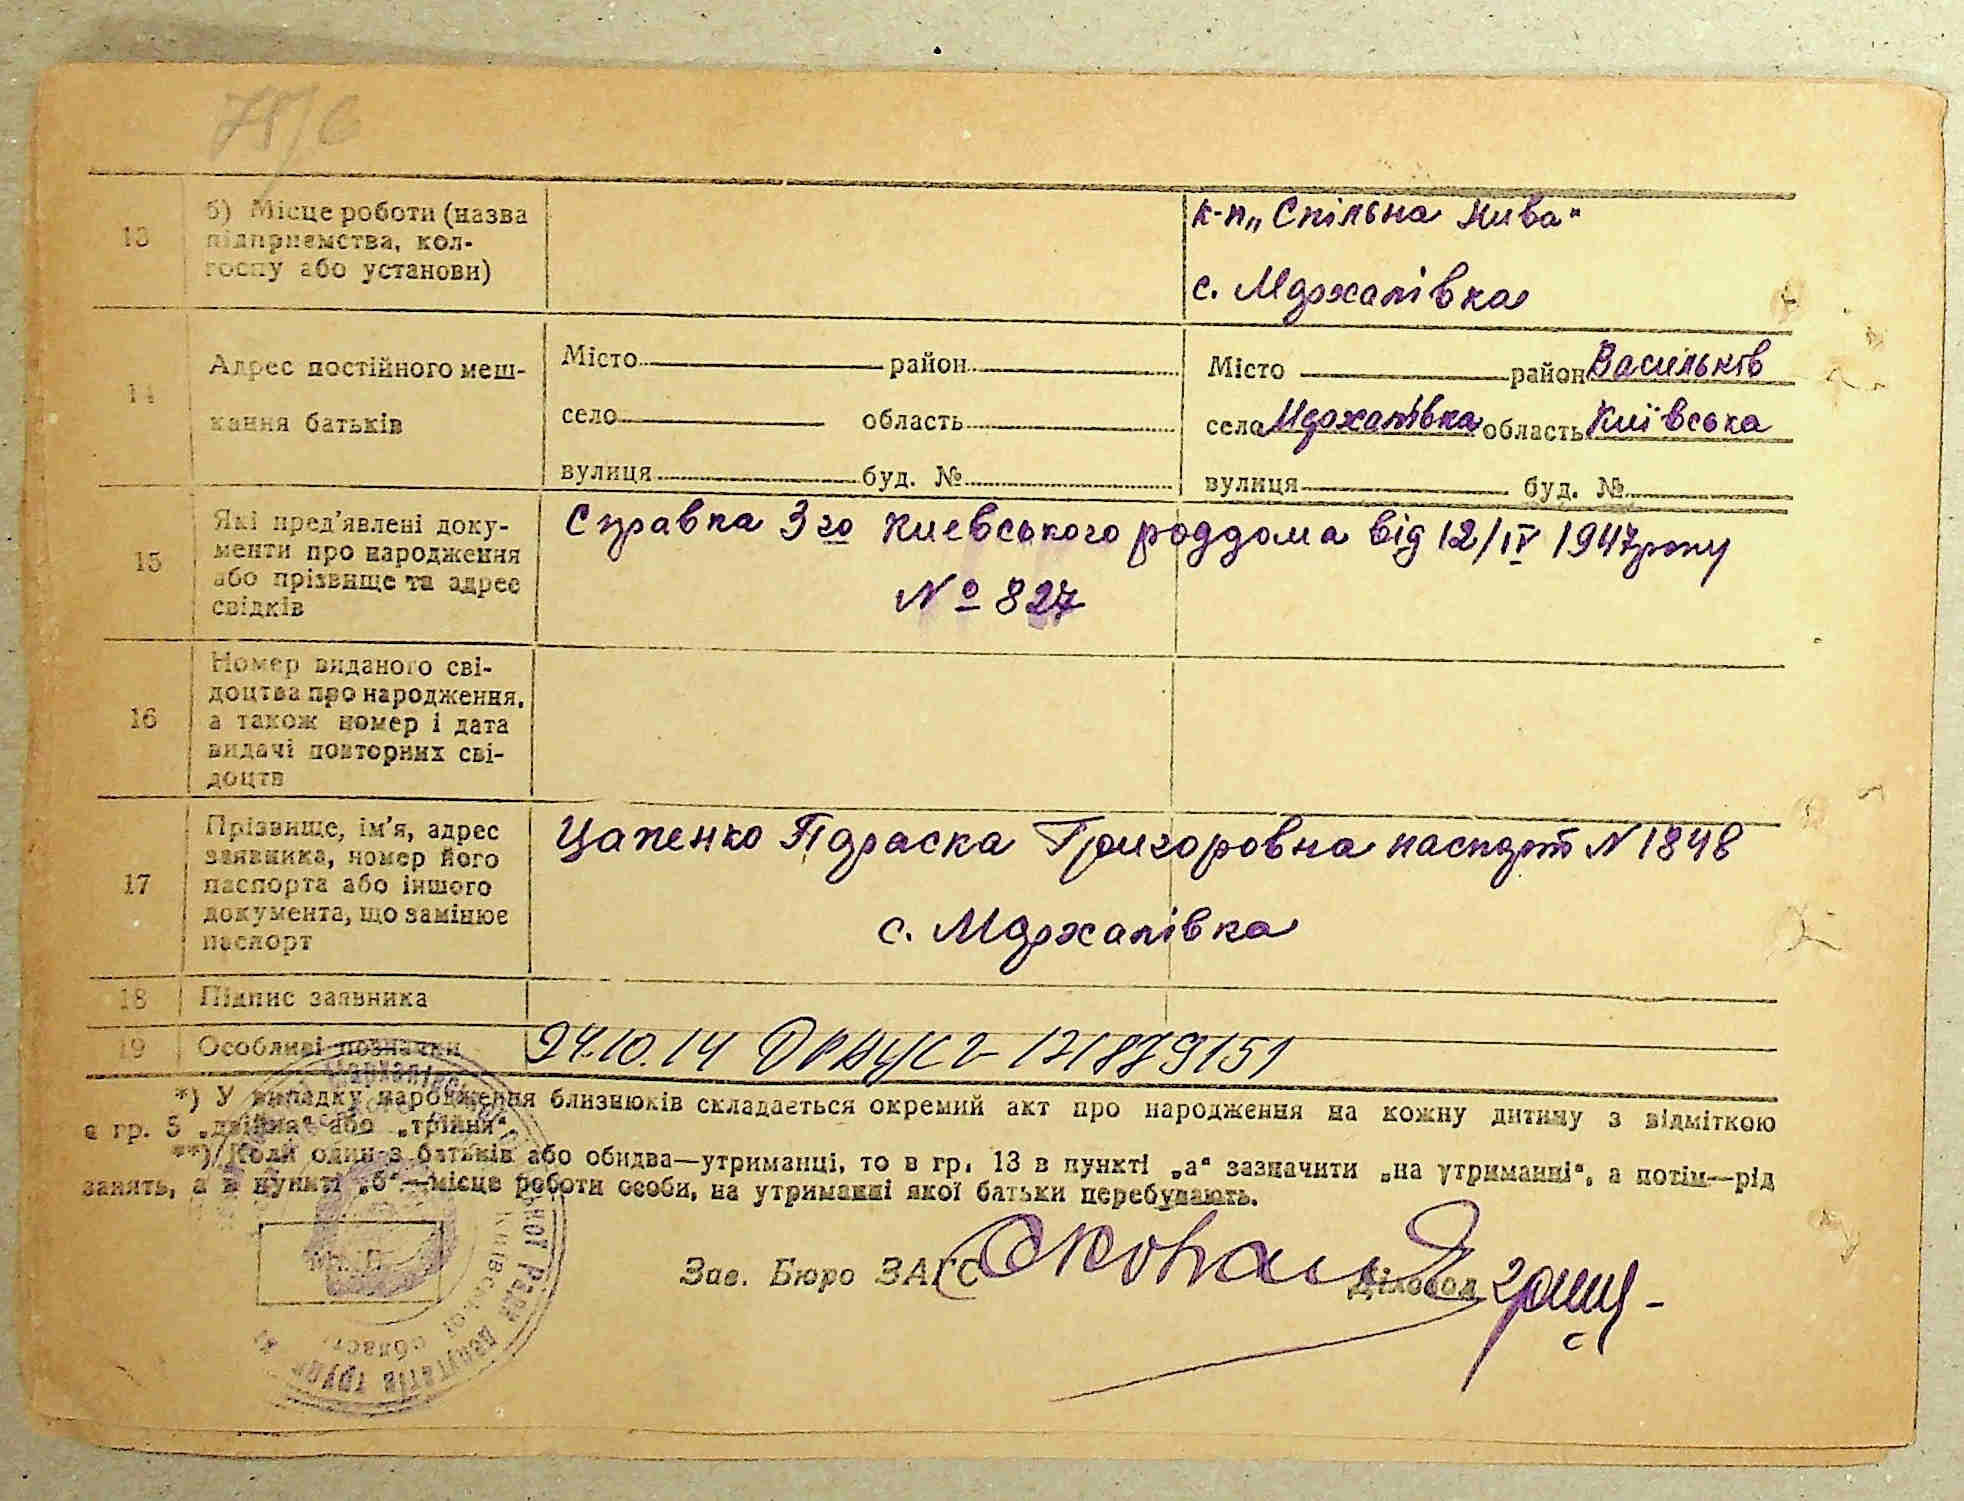 13 б) Місце роботи (назва підприємства, колгоспу або установи)
к-п „Спільна Нива"
с. Мархалівка
14 Адрес постійного мешкання батьків
Місто район
село область
вулиця буд. №
Місто район Васильків
село Мархалівка область Київська
вулиця буд. №
15 Які пред'явлені документи про народження або прізвище та адрес свідків
Справка 3го Киевського роддома від 12/IV 1947 року
№ 827
16 Номер виданого свідоцтва про народження, а також номер і дата видачі повторних свідоцтв
17 Прізвище, ім'я, адрес заявника, номер його паспорта або іншого документа, що замінює паспорт
Цапенко Параска Григоровна паспорт N 1848
с. Мархалівка
18 Підпис заявника
19 Особливі позначки
24.10.14
*) У випадку народження близнюків складається окремий акт про народження на кожну дитину з відміткою
в гр. 5 „двійня" або „трійня".
**) Коли один з батьків або обидва—утриманці, то в гр. 13 в пункті „а" зазначити „на утриманні", а потім—рід
занять, а в пункті „б"—місце роботи особи, на утриманні якої батьки перебувають.
М. П.
Зав. Бюро ЗАГС
Діловод